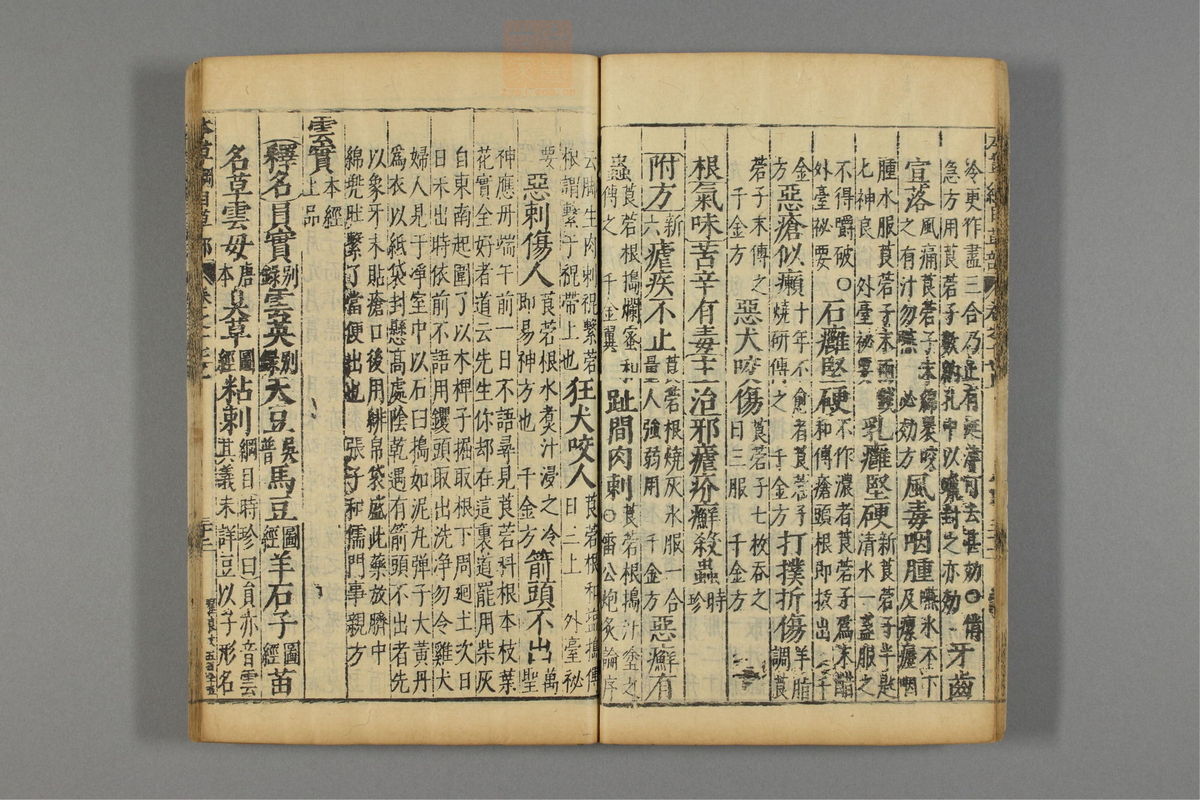 冷更作盡三合乃止有涎津可去甚効○備
急方用莨菪子數納孔中以蠟封之亦効
牙齒
宣落
風痛莨菪子末綿裹咬
之有汁勿嚥 必効方
風毒咽腫
嚥水不下
及瘰癧咽
腫水服莨菪子末兩錢
匕神良 外臺秘要
乳癰堅硬
新莨菪子半匙
清水一盞服之
不得嚼破○
外臺秘要
石癰堅硬
不作濃者莨菪子爲末醋
和傅瘡頭根即拔出 千
金方
惡瘡似癩
十年不愈者莨菪子
燒研傅之 千金方
打撲折傷
羊脂
調莨
菪子末傅之
千金方
惡犬咬傷
莨菪子七枚吞之
日三服 千金方
根氣味苦辛有毒主治邪瘧疥癬殺蟲
時
珍
附方
新
六
瘧疾不止
莨菪根燒灰水服一合
量人強弱用 千金方
惡癬有
蟲
莨菪根搗爛蜜和
傅之 千金翼
趾間肉刺
○莨菪根搗汁塗之
雷公炮炙論序
云脚生肉刺裩繫菪
根謂繫于裩帶上也
狂犬咬人
莨菪根和鹽搗傅
日三上 外臺秘
要
惡刺傷人
莨菪根水煮汁浸之冷
即易神方也 千金方
箭頭不出
萬
聖
神應丹端午前一日不語尋見莨菪科根本枝葉
花實全好者道云先生你却在這裏道罷用柴灰
自東南起圍了以木椑子掘取根下周迴土次日
日未出時依前不語用钁頭取出洗净勿令雞犬
婦人見于淨室中以石臼搗如泥丸彈子大黃丹
爲衣以紙袋封懸高處陰乾遇有箭頭不出者先
以象牙末貼瘡口後用緋帛袋盛此藥放臍中
綿兜肚繫了當便出也 張子和儒門事親方
雲實
本經
上品
釋名
員實
別
錄
雲英
別
錄
天豆
吳
普
馬豆
圖
經
羊石子
圖
經
苗
名草雲母
唐
本
臭草
圖
經
粘刺
綱目時珍曰員亦音雲
其義未詳豆以子形名